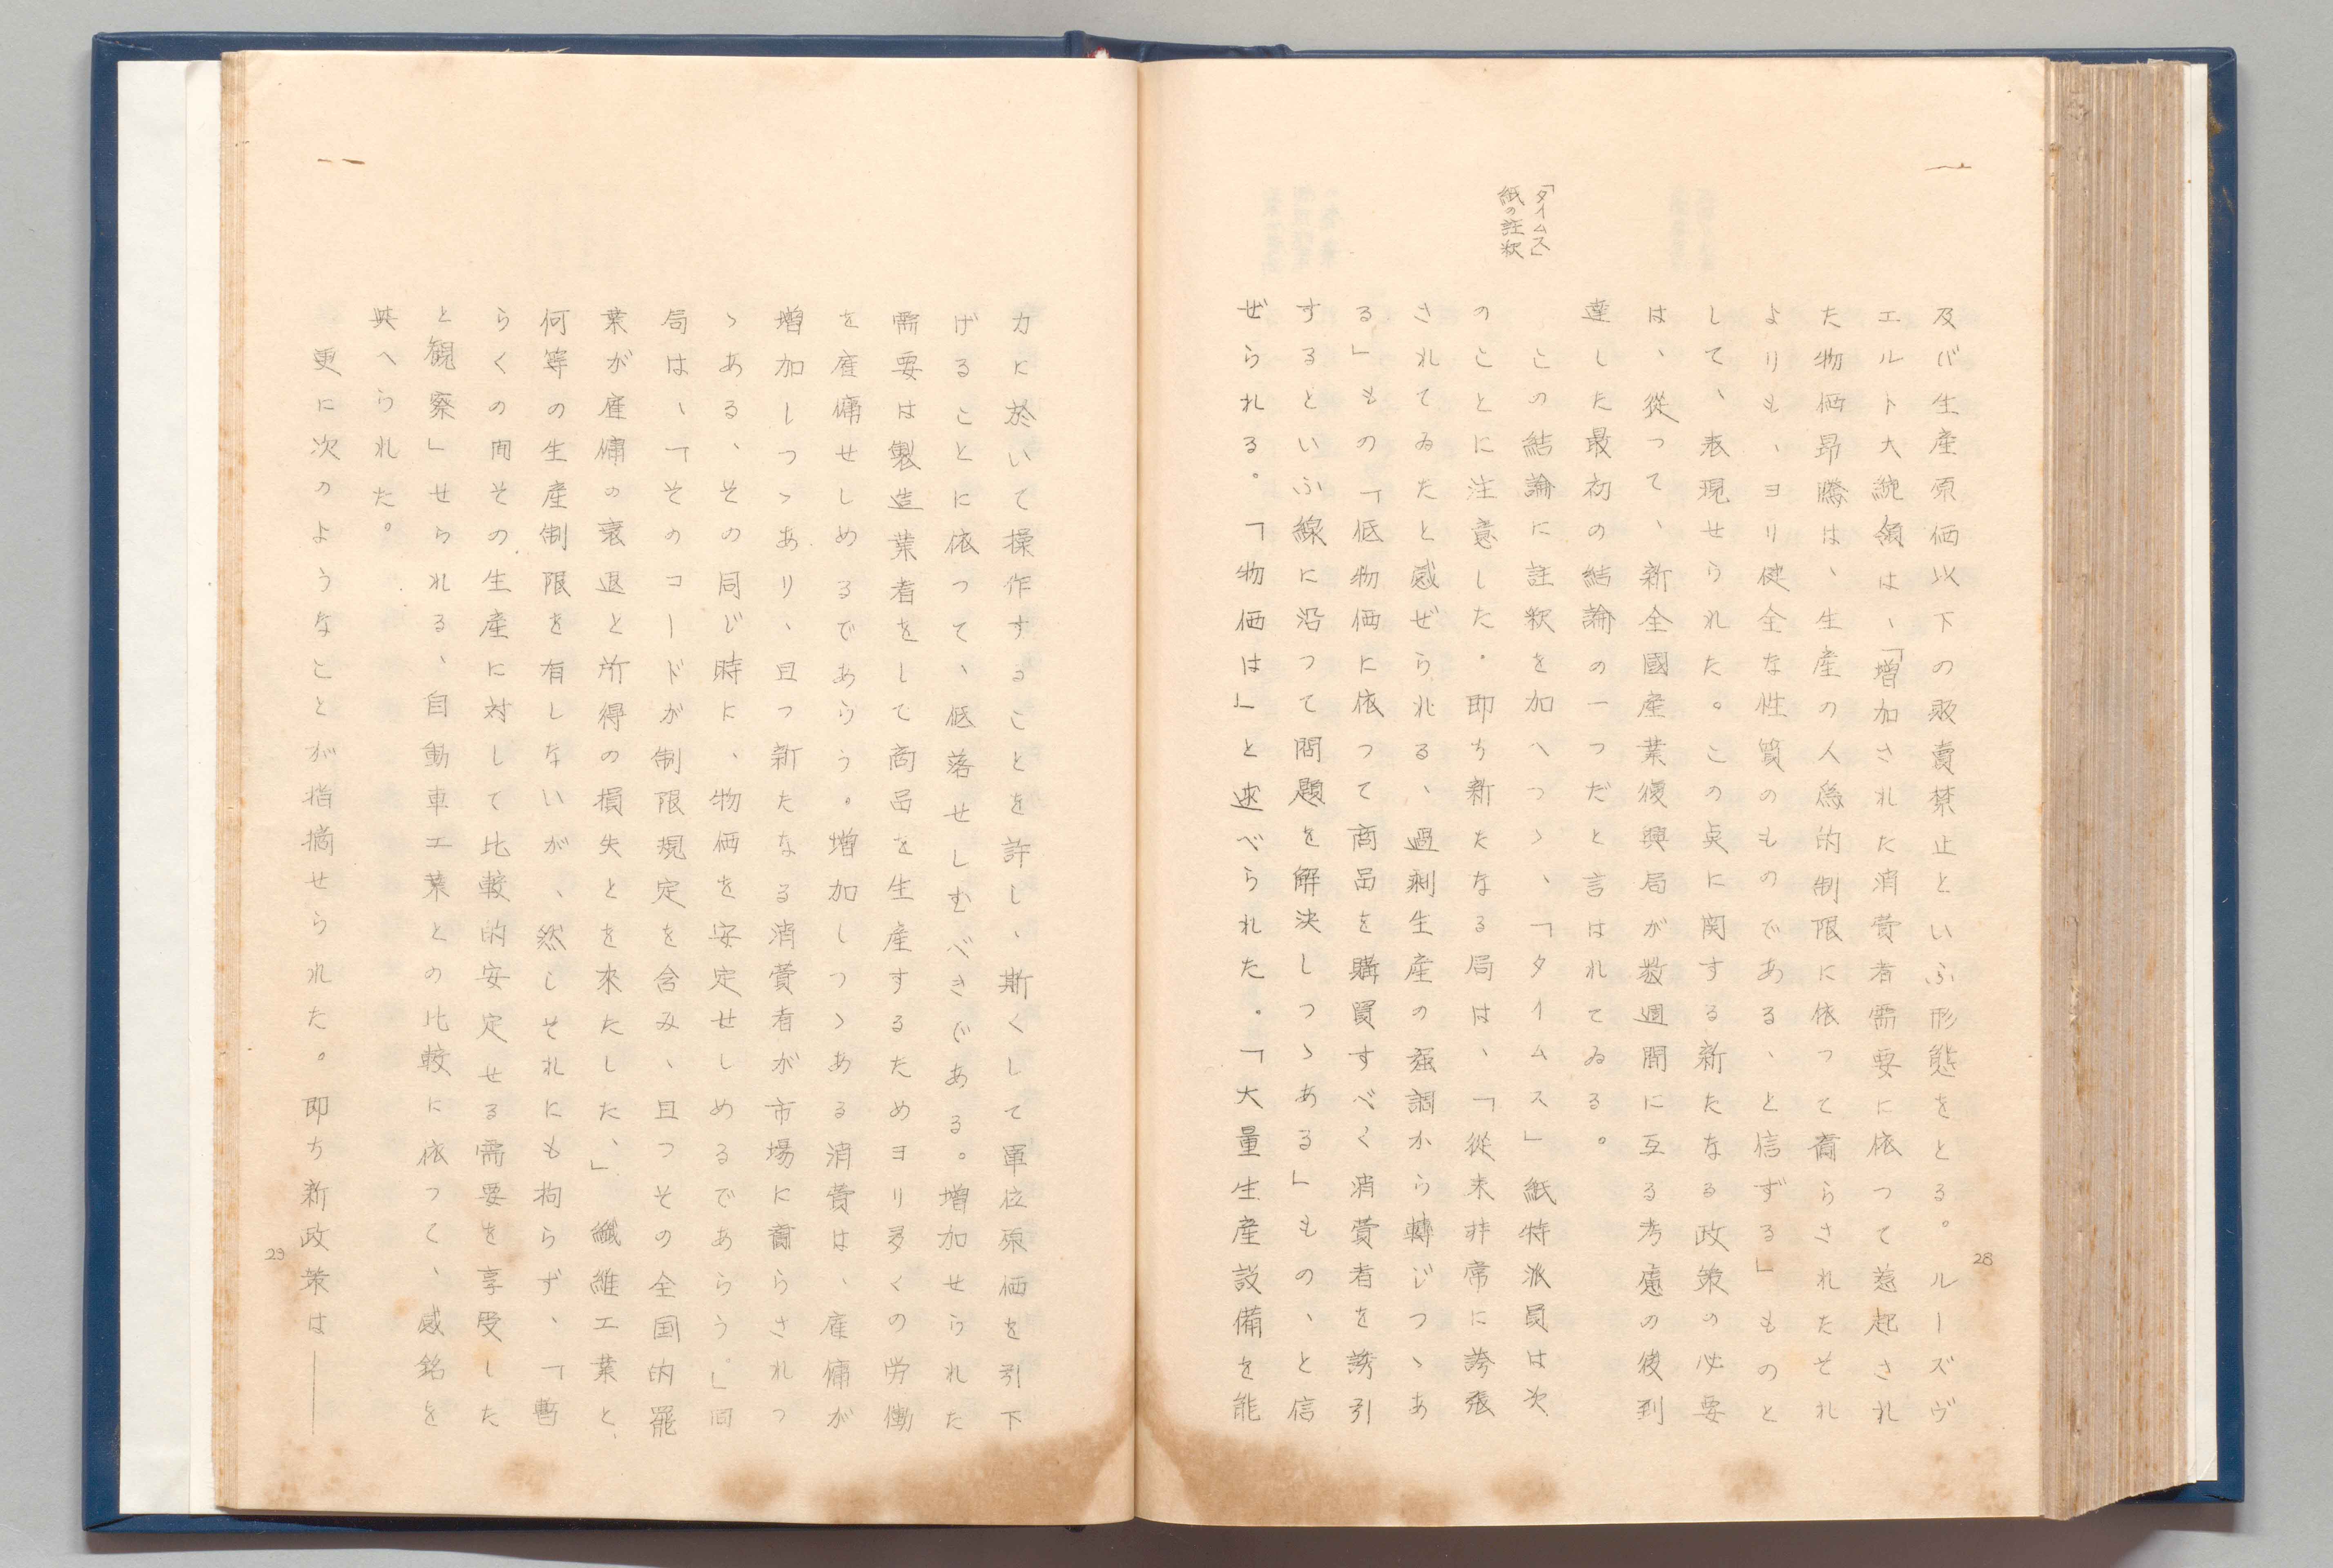 28
「タイムス」
紙の註釈
及び生産原価以下の販賣禁止といふ形態をとる。ルーズヴ
エルト大統領は、「増加された消費者需要に依つて惹起され
た物価昂騰は、生産の人為的制限に依つて齎らされたそれ
よりも、ヨリ健全な性質のものである、と信ずる」ものと
して、表現せられた。この点に関する新たなる政策の必要
は、從つて、新全國産業復興局が数週間に亙る考慮の後到
達した最初の結論の一つだと言はれてゐる。
この結論に註釈を加へつゝ、「タイムス」紙特派員は次
のことに注意した．即ち新たなる局は、「從来非常に誇張
されてゐたと感ぜられる、過剰生産の强調から轉じつゝあ
る」もの「低物価に依つて商品を購買すべく消費者を誘引
するといふ線に沿つて問題を解決しつゝある」もの、と信
ぜられる。「物価は」と述べられた。「大量生産設備を能
力に於いて操作することを許し、斯くして單位原価を引下
げることに依つて、低落せしむべきである。増加せられた
需要は製造業者をして商品を生産するためヨリ多くの労働
を雇傭せしめるであらう。増加しつゝある消費は、雇傭が
増加しつゝあり、且つ新たなる消費者が市場に齎らされつ
ゝある、その同じ時に、物価を安定せしめるであらう。」同
局は、「そのコードが制限規定を含み、且つその全国的罷
業が雇傭の衰退と所得の損失とを來たした、」 纖維工業と、
何等の生産制限を有しないが、然しそれにも拘らず、「暫
らくの間その生産に対して比較的安定せる需要を享受した
と観察」せられる、自動車工業との比較に依つて、感銘を
與へられた。
更に次のようなことが指摘せられた。即ち新政策は――
29